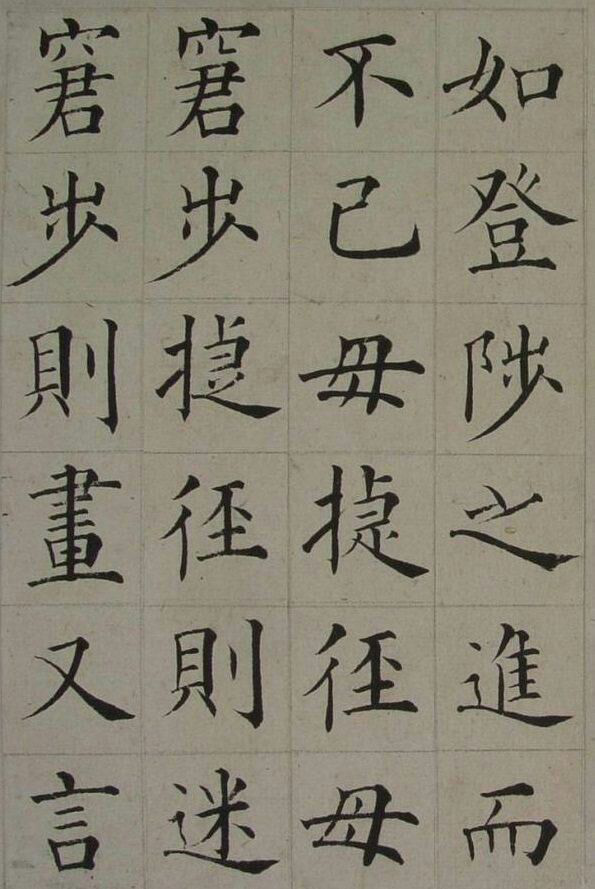 如登陟之進而
不已毋捷徑毋
窘步捷徑則迷
窘步則畫又言